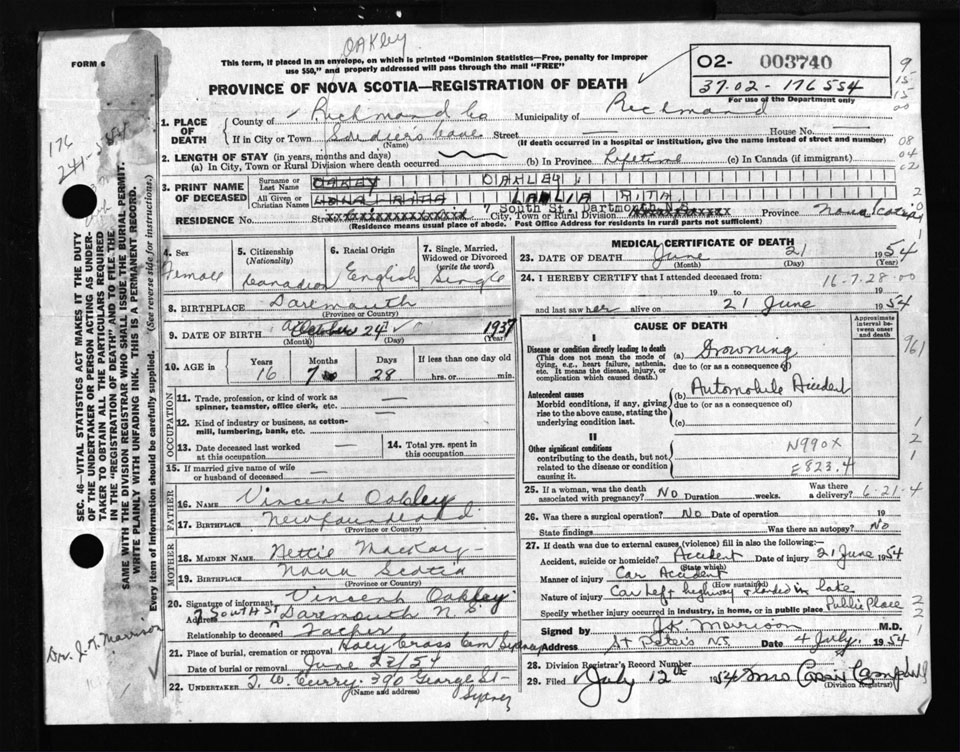 OAKley
FORM 6
This form, if placed in an envelope, on which is printed "Dominion Statistics—Free, penalty for improper use $50," and properly addressed will pass through the mail "FREE"
O2- 003740
37.02 - 176554
For use of the Department only
PROVINCE OF NOVA SCOTIA—REGISTRATION OF DEATH
1. PLACE OF DEATH County of Richmond Co Municipality of Richmond
If in City or Town Soldier's Cove Street — House No. —
(Name) (If death occurred in a hospital or institution, give the name instead of street and number)
2. LENGTH OF STAY (in years, months and days)
(a) In City, Town or Rural Division where death occurred (b) In Province Lifetime (c) In Canada (if immigrant)
3. PRINT NAME OF DECEASED Surname or Last Name OAKLEY
All Given or Christian Names RITA
7 South St. Dartmouth N.S.
RESIDENCE No. Street City, Town or Rural Division Province Nova Scotia
(Residence means usual place of abode. Post Office Address for residents in rural parts not sufficient)
4. Sex Female
5. Citizenship (Nationality) Canadian
6. Racial Origin English
7. Single, Married, Widowed or Divorced (write the word) Single
8. BIRTHPLACE Dartmouth
(Province or Country)
9. DATE OF BIRTH October 24 1937
(Month) (Day) (Year)
10. AGE in Years 16 Months 7 Days 28 If less than one day old hrs. or min.
OCCUPATION
11. Trade, profession, or kind of work as spinner, teamster, office clerk, etc. —
12. Kind of industry or business, as cotton-mill, lumbering, bank, etc. —
13. Date deceased last worked at this occupation —
14. Total yrs. spent in this occupation
15. If married give name of wife or husband of deceased —
FATHER
16. NAME Vincent Oakley
17. BIRTHPLACE Newfoundland
(Province or Country)
MOTHER
18. MAIDEN NAME Nettie MacKay
19. BIRTHPLACE Nova Scotia
(Province or Country)
20. Signature of informant Vincent Oakley
Address 7 SOUTH ST Dartmouth N.S.
Relationship to deceased Father
21. Place of burial, cremation or removal Holy Cross Cem Sydney
Date of burial or removal June 22/54
22. UNDERTAKER T. W. Curry. 390 George St - Sydney
(Name and address)
MEDICAL CERTIFICATE OF DEATH
23. DATE OF DEATH June 21 1954
(Month) (Day) (Year)
24. I HEREBY CERTIFY that I attended deceased from 16-7-28-00
19 to 19
and last saw her alive on 21 June 1954
CAUSE OF DEATH
Approximate interval between onset and death
I
Disease or condition directly leading to death (a) Drowning
(This does not mean the mode of dying, e.g., heart failure, asthenia, etc. It means the disease, injury, or complication which caused death.)
due to (or as a consequence of)
Antecedent causes (b) Automobile Accident
Morbid conditions, if any, giving rise to the above cause, stating the underlying condition last.
due to (or as a consequence of)
(c)
II
Other significant conditions
contributing to the death, but not related to the disease or condition causing it.
N990X
E823.4
25. If a woman, was the death associated with pregnancy? No Duration weeks. Was there a delivery? 6-21-4
26. Was there a surgical operation? No Date of operation 19
State findings Was there an autopsy? No
27. If death was due to external causes (violence) fill in also the following:
Accident, suicide or homicide? Accident Date of injury 21 June 1954
(State which)
Manner of injury Car Accident
(How sustained)
Nature of injury Car left highway & landed in lake
Specify whether injury occurred in industry, in home, or in public place Public Place
Signed by J.K. Morrison M.D.
St. Peter's N.S. 4 July 1954
28. Division Registrar's Record Number
29. Filed July 12th 1954 Mrs Campbell
(Division Registrar)
SEC. 46—VITAL STATISTICS ACT MAKES IT THE DUTY OF THE UNDERTAKER OR PERSON ACTING AS UNDERTAKER TO OBTAIN ALL THE PARTICULARS REQUIRED IN THE "REGISTRATION OF DEATH" AND TO FILE THE SAME WITH THE DIVISION REGISTRAR WHO SHALL ISSUE THE BURIAL PERMIT.
WRITE PLAINLY WITH UNFADING INK. THIS IS A PERMANENT RECORD.
Every item of information should be carefully supplied. (See reverse side for instructions.)
Dr. J. K. Morrison
176